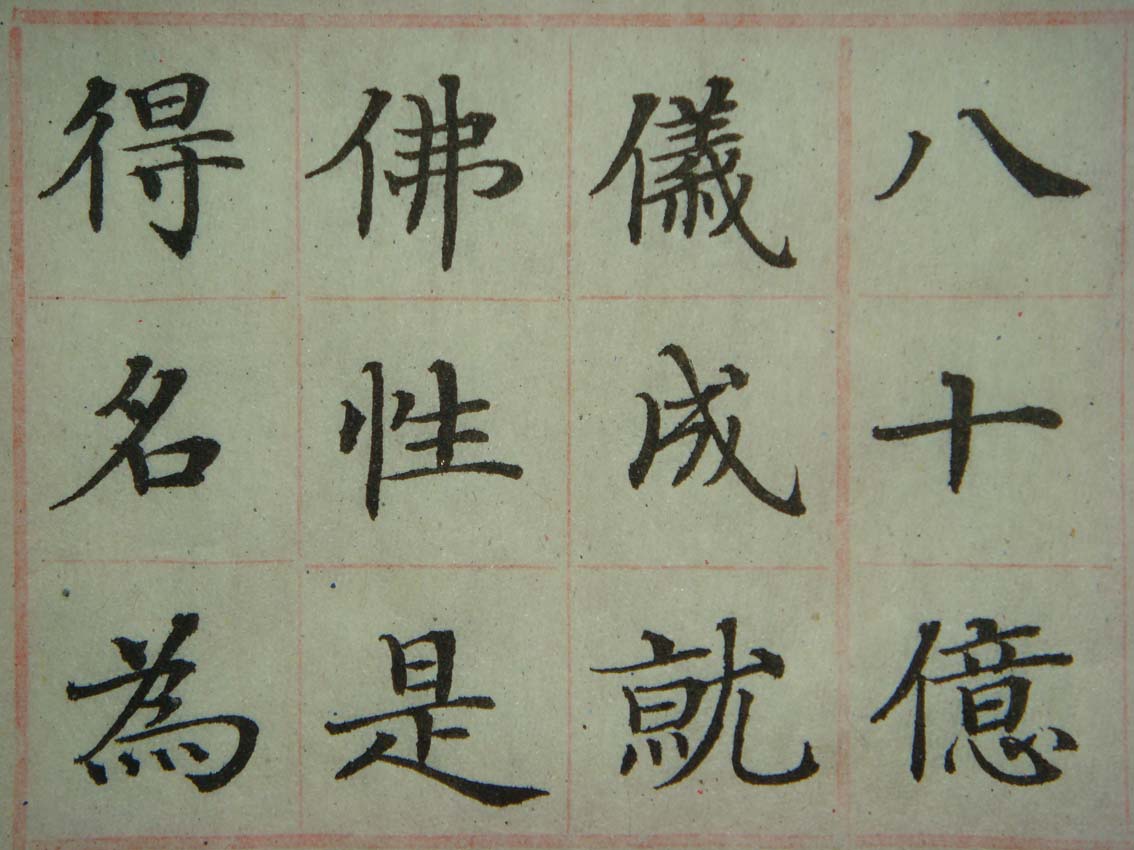 八十億
儀成就
佛性是
得名為